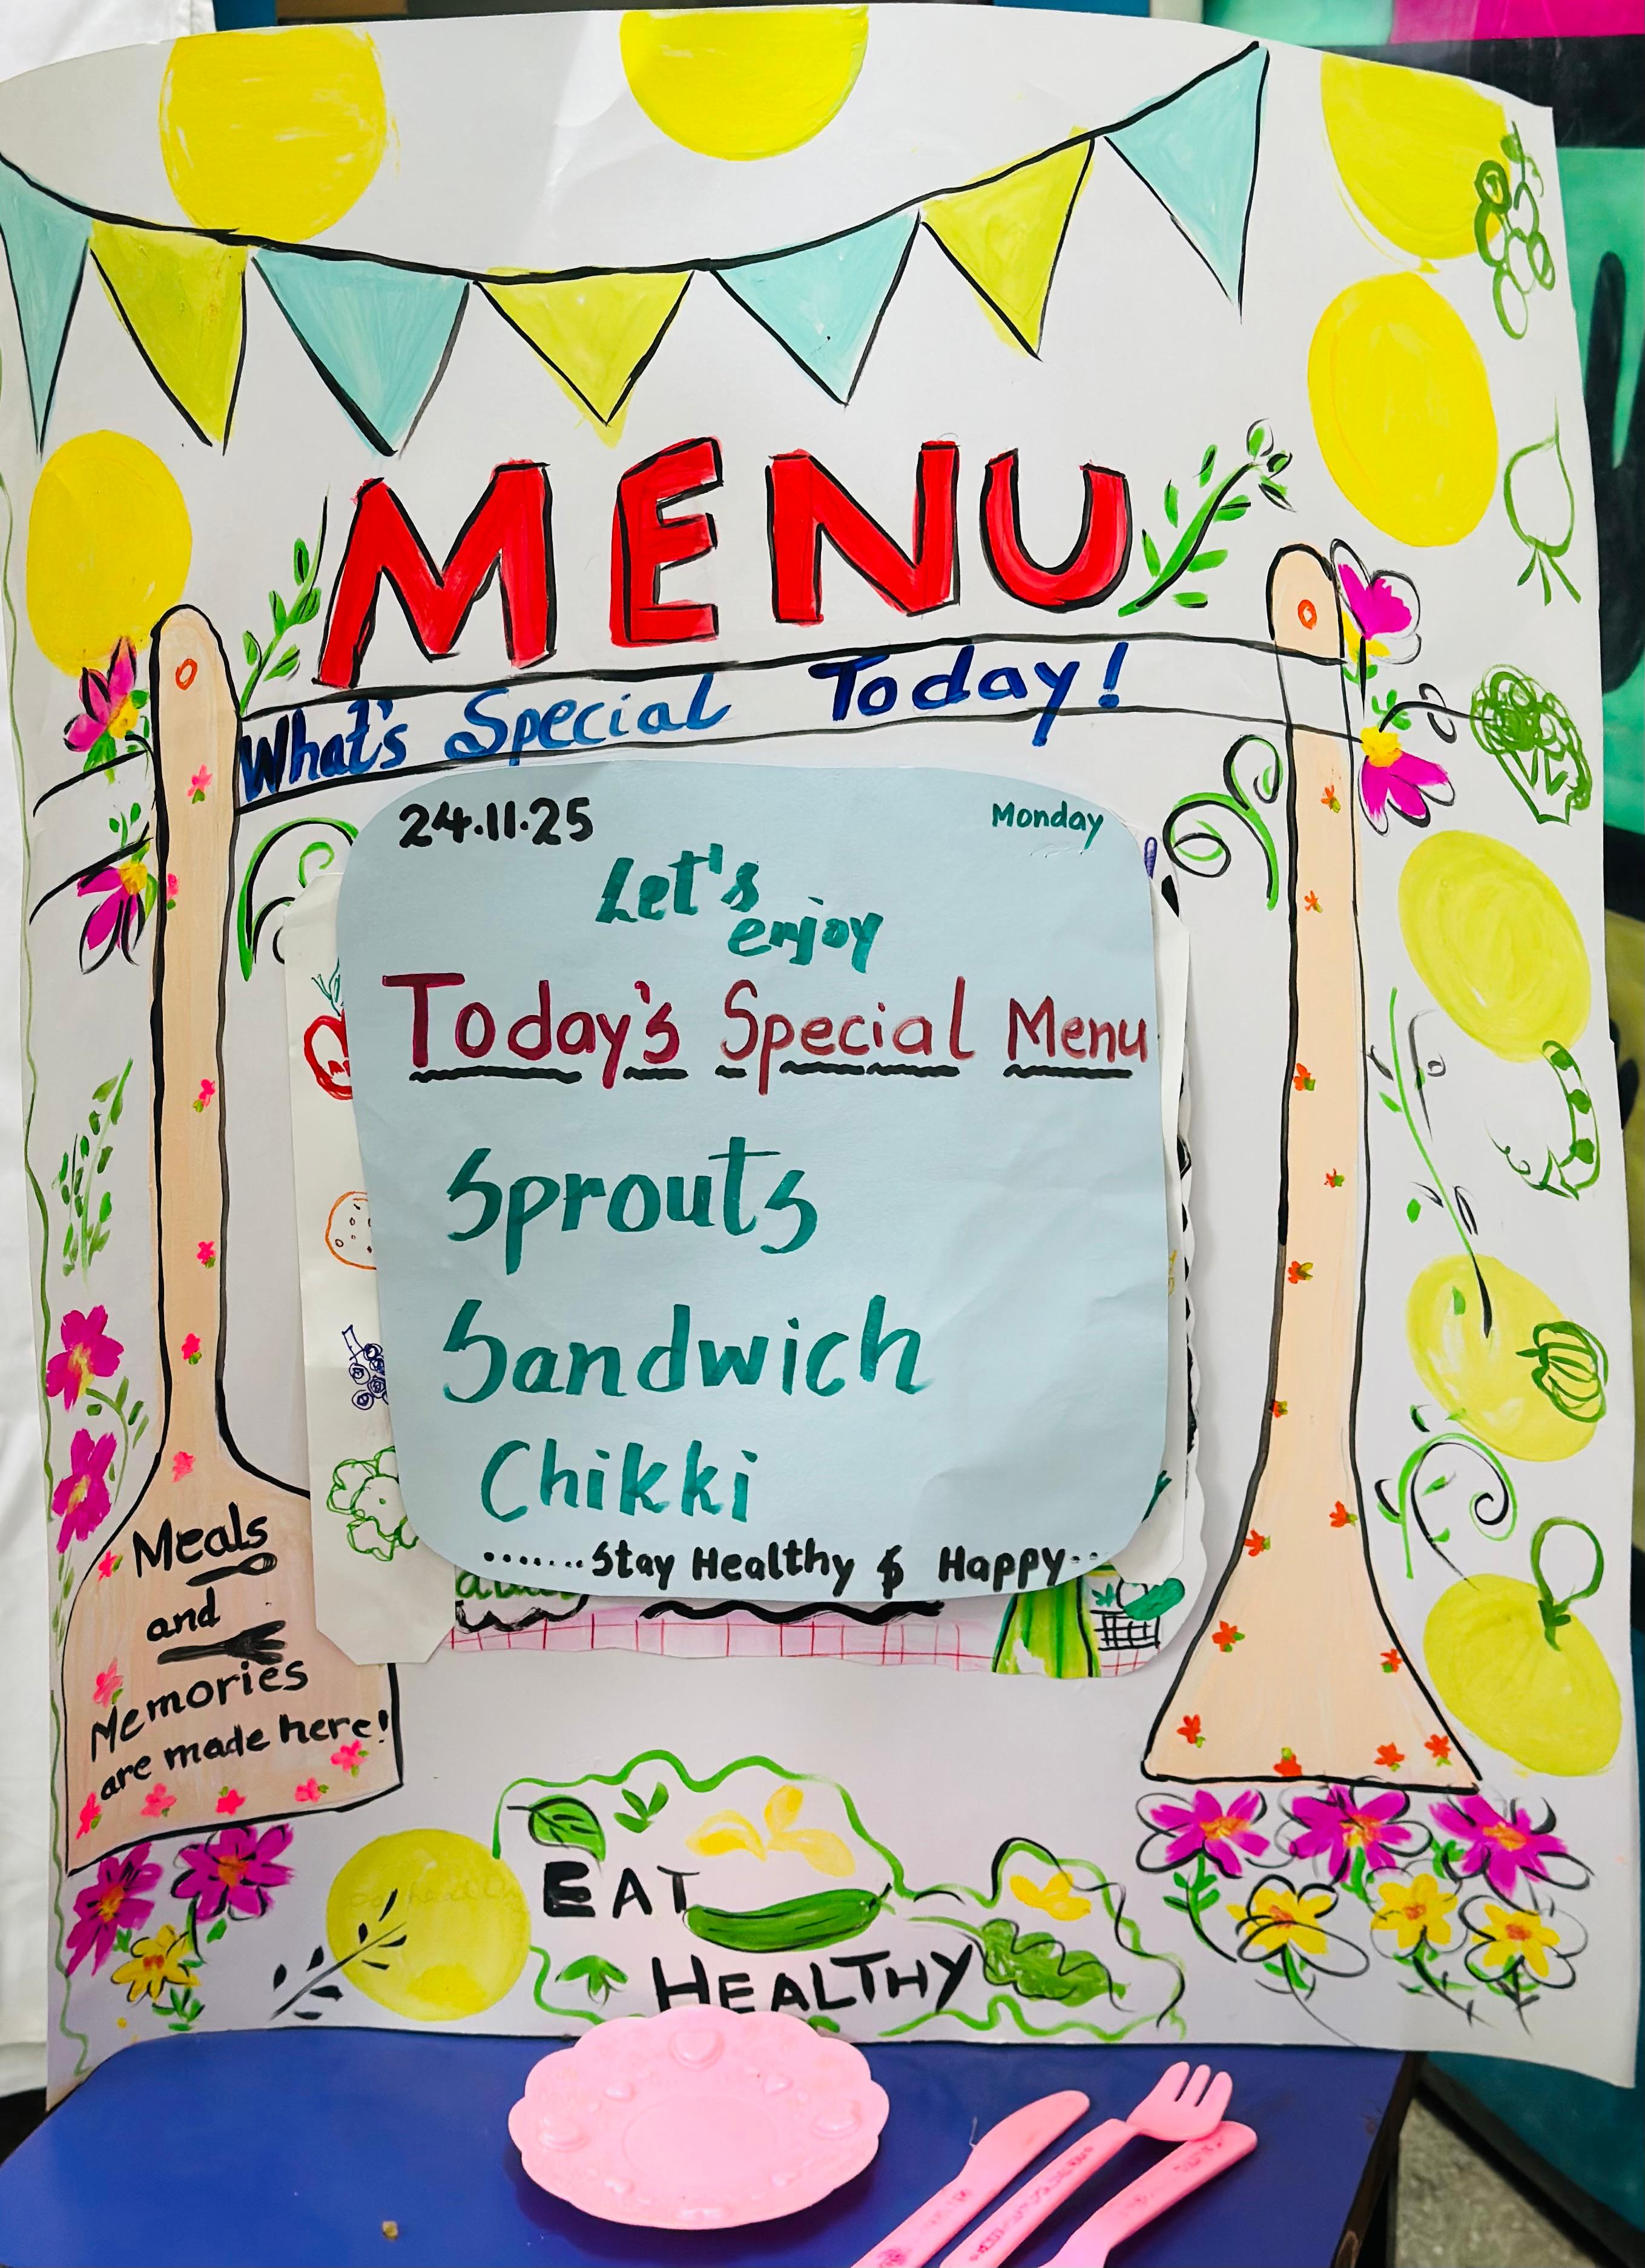 MENU
What's Special Today!
24.11.25 Monday
Let's
enjoy
Today's Special Menu
Sprouts
Sandwich
Chikki
.......Stay Healthy $ Happy..
Meals
and
Memories
are made here!
EAT
HEALTHY